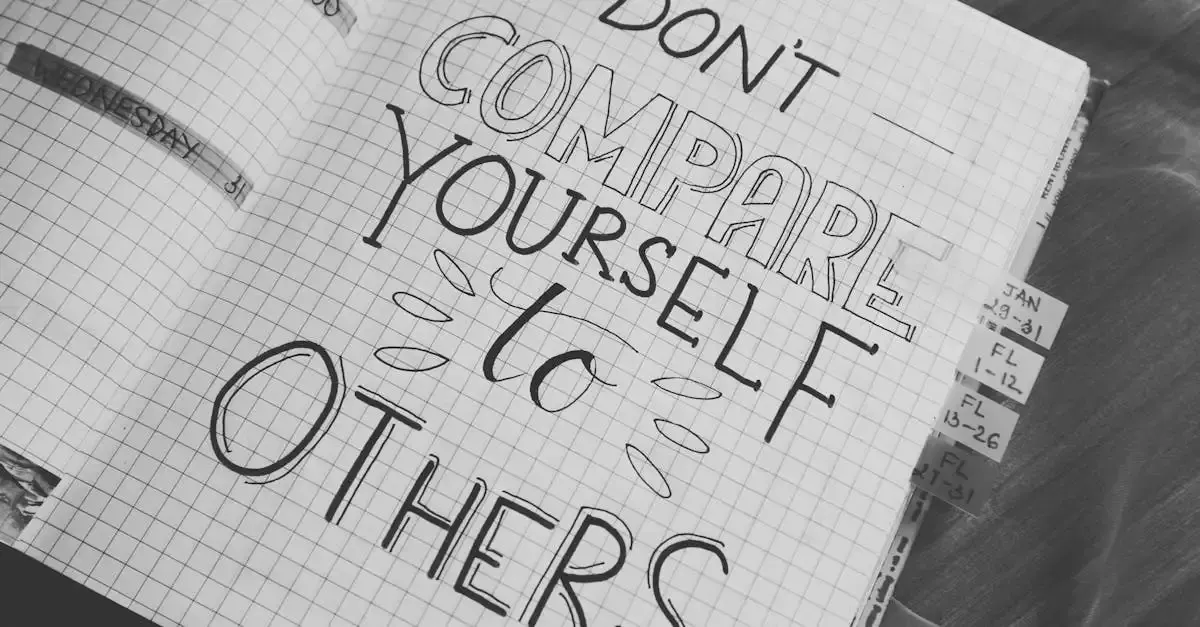 WEDNESDAY
31
DON'T
COMPARE
YOURSELF
to
OTHERS
JAN
29-31
FL
1-12
FL
13-26
FL
27-31